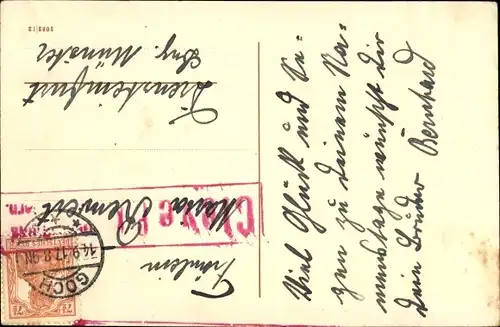 Viel Glück und Se-
gen zu Deinem Na-
menstage wünscht Dir
Dein Bruder Bernhard
Fräulein
Maria
Cleve
Bez. Münster
GOCH
14.9.17.8-9N.
7½
7½